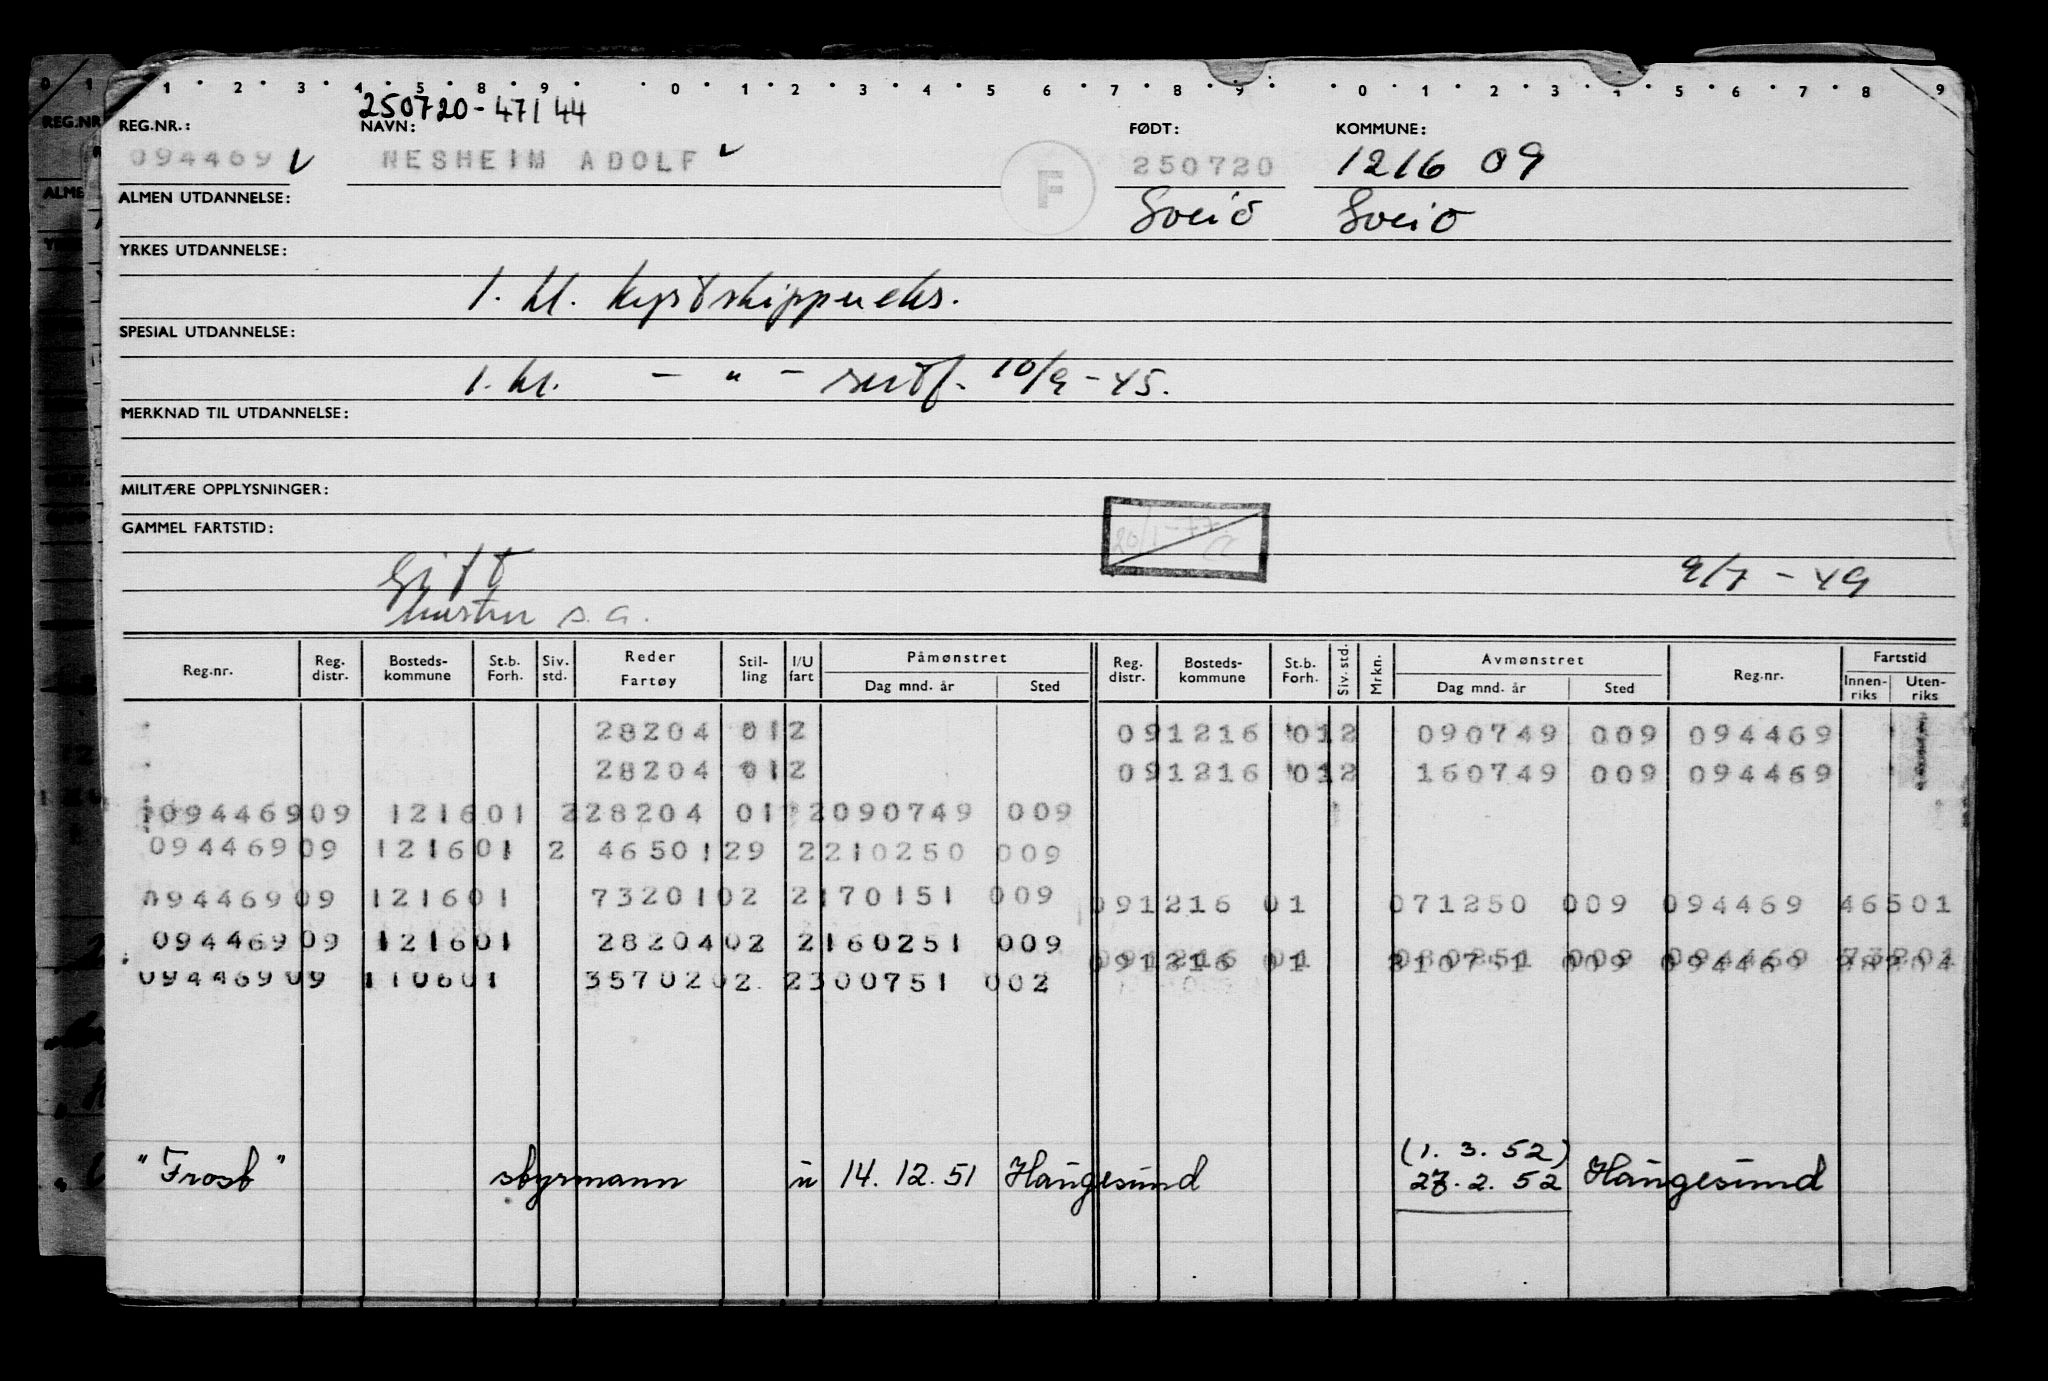 1 2 3 4 5 6 7 8 9 0 1 2 3 4 5 6 7 8 9 0 1 2 3 4 5 6 7 8 9
250720-47144
REG.NR.: NAVN: FØDT: KOMMUNE:
094469 NESHEIM ADOLF F 250720 1216 09
ALMEN UTDANNELSE: Sveio Sveio
YRKES UTDANNELSE:
1. kl. kystskippereks.
SPESIAL UTDANNELSE:
1. kl. - " - sertf. 10/9-45.
MERKNAD TIL UTDANNELSE:
MILITÆRE OPPLYSNINGER:
GAMMEL FARTSTID:
Gift 9/7-49
hustru s.a.
Reg.nr. Reg. distr. Bosteds-kommune St.b. Forh. Siv. std. Reder Fartøy Stil-ling I/U fart Påmønstret Dag mnd. år Sted Reg. distr. Bosteds-kommune St.b. Forh. Siv. std. Mrkn. Avmønstret Dag mnd. år Sted Reg.nr. Fartstid Innen-riks Uten-riks
28204 012 091216 012 090749 009 094469
28204 012 091216 012 160749 009 094469
09446909 121601 228204 01 2090749 009
09446909 121601 2 4650129 2210250 009
09446909 121601 7320102 2170151 009 091216 01 071250 009 094469 46501
09446909 121601 2820402 2160251 009
09446909 110601 3570202 2300751 002
(1. 3. 52)
"Frost" styrmann u 14. 12. 51 Haugesund 27. 2. 52 Haugesund